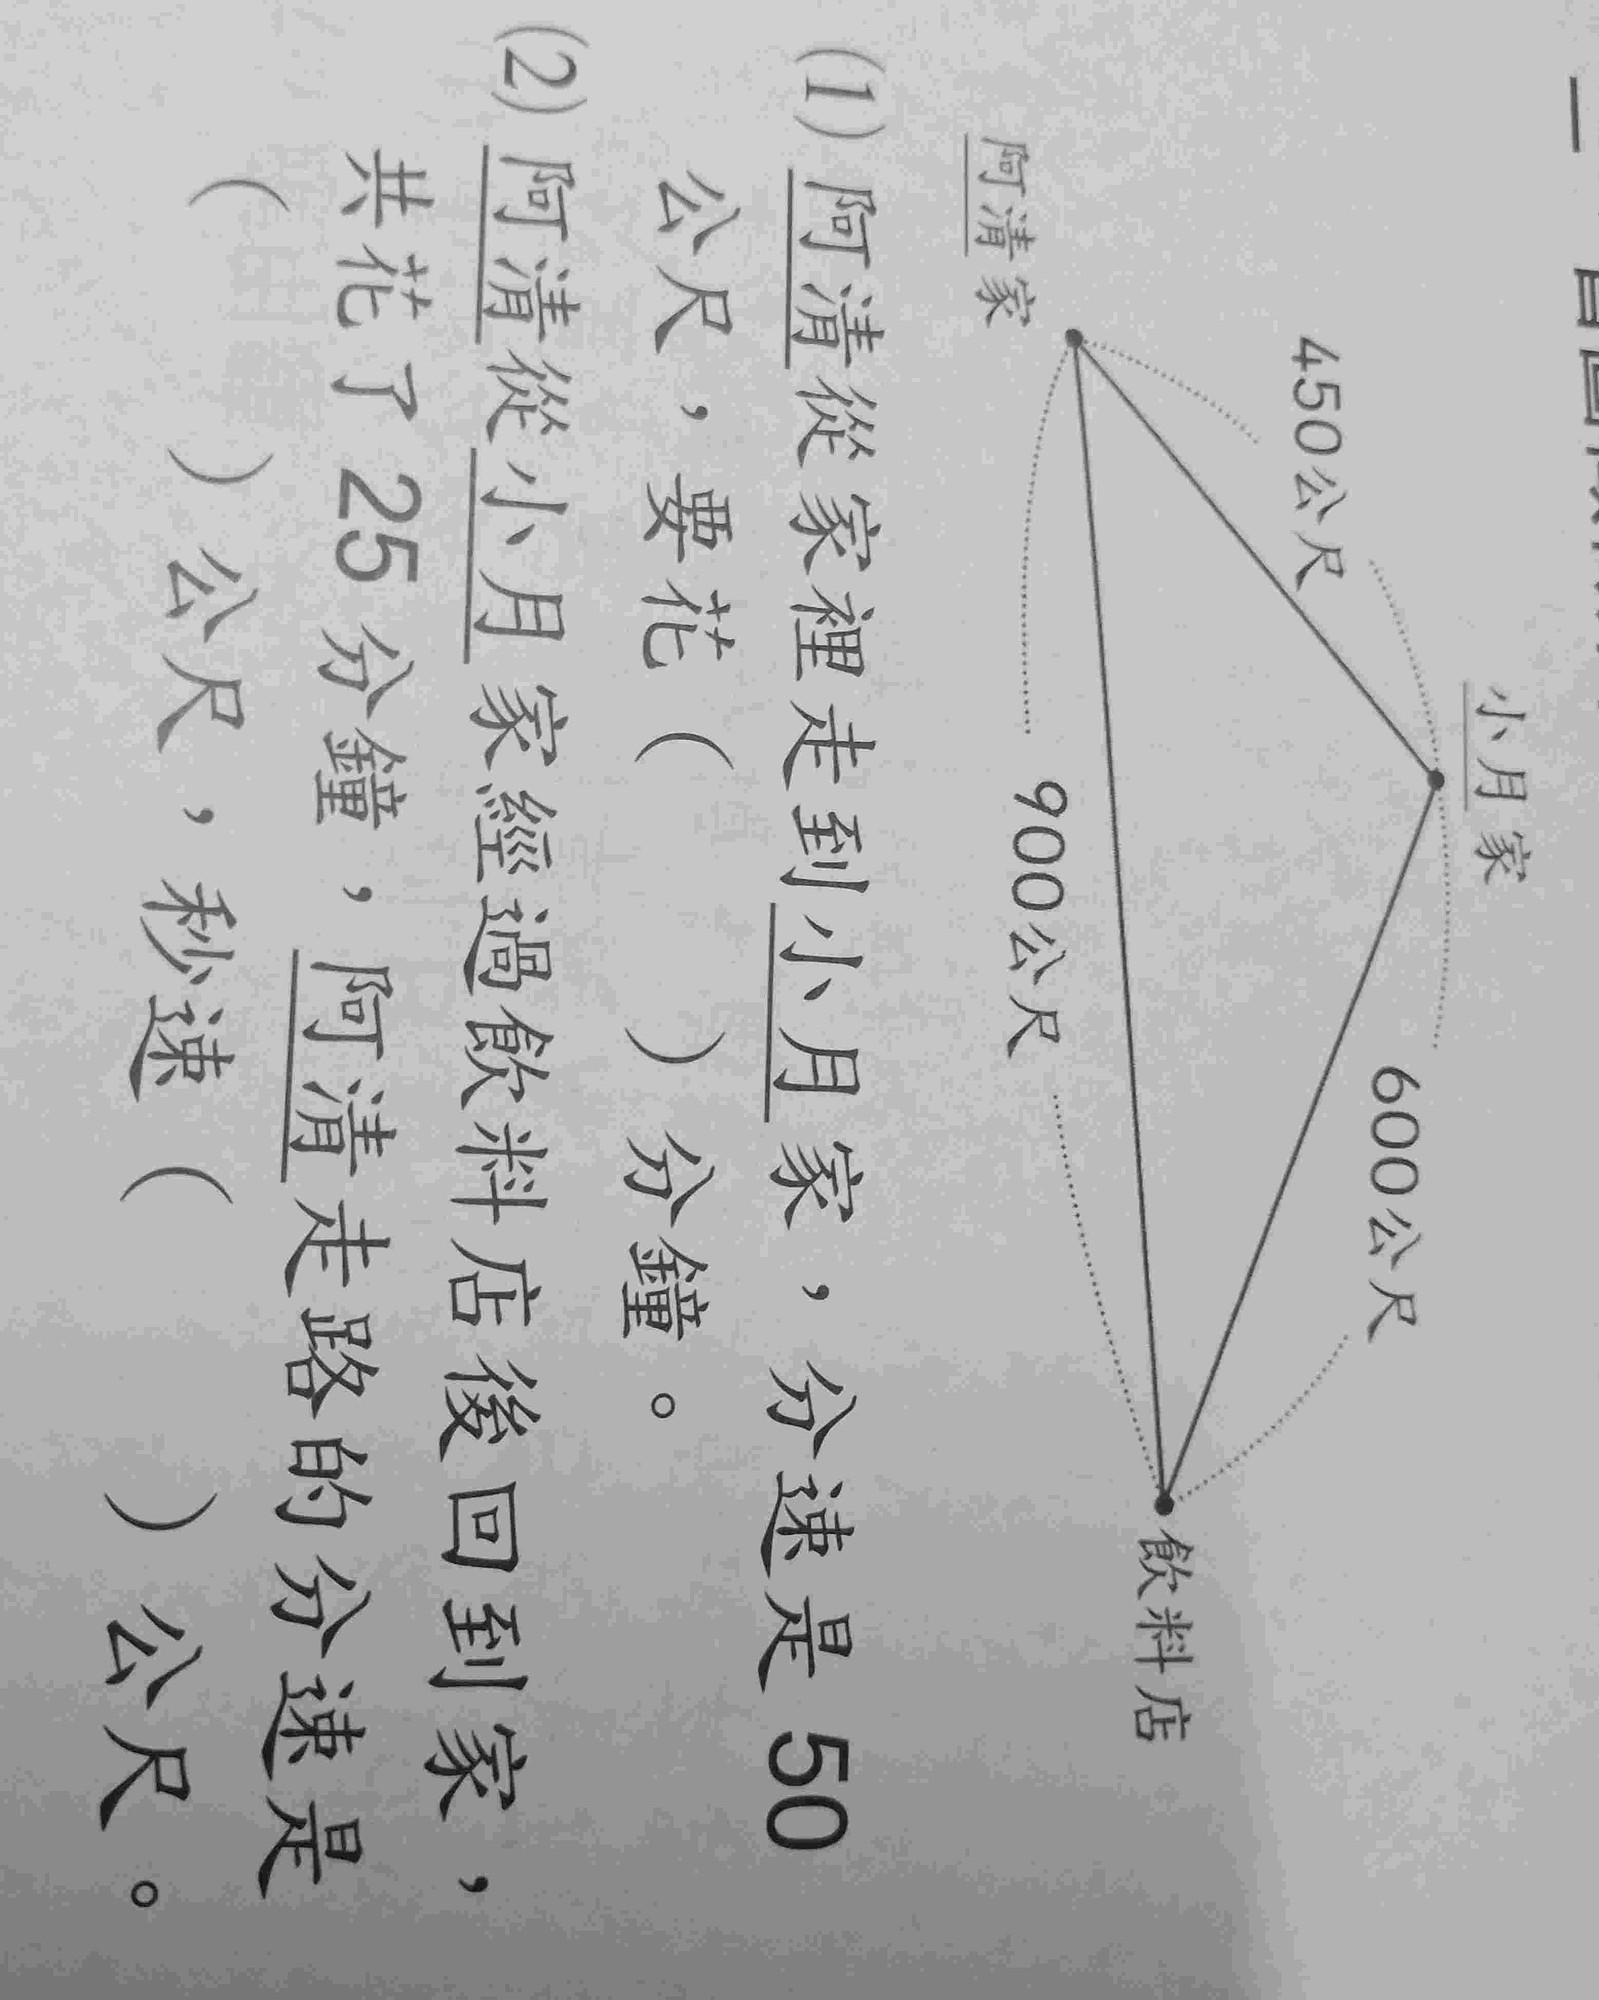 小月家
450公尺
600公尺
阿清家
900公尺
飲料店
(1) 阿清從家裡走到小月家，分速是 50
公尺，要花（　　）分鐘。
(2) 阿清從小月家經過飲料店後回到家，
共花了 25 分鐘，阿清走路的分速是
（　　）公尺，秒速（　　）公尺。